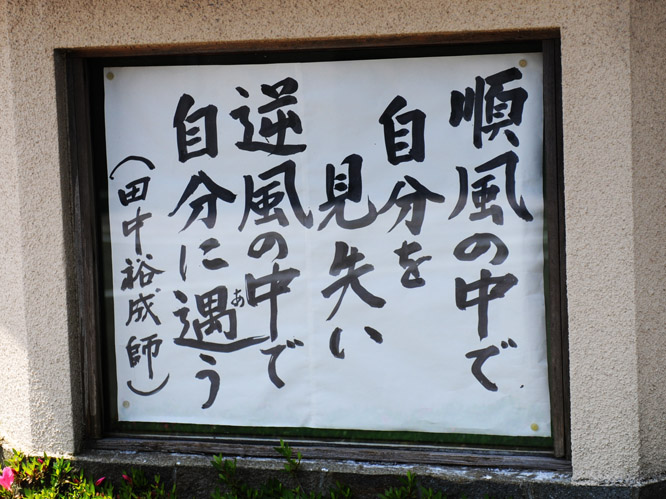 順風の中で
自分を
見失い
逆風の中で
自分に遇う
あ
(田中裕成師)